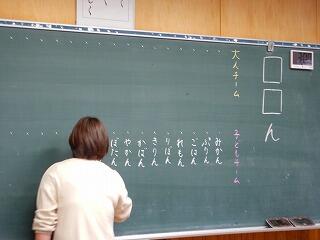 □□ん
大人チーム
子どもチーム
みかん
ぷりん
ごはん
れもん
りぼん
きりん
かばん
やかん
ぼたん